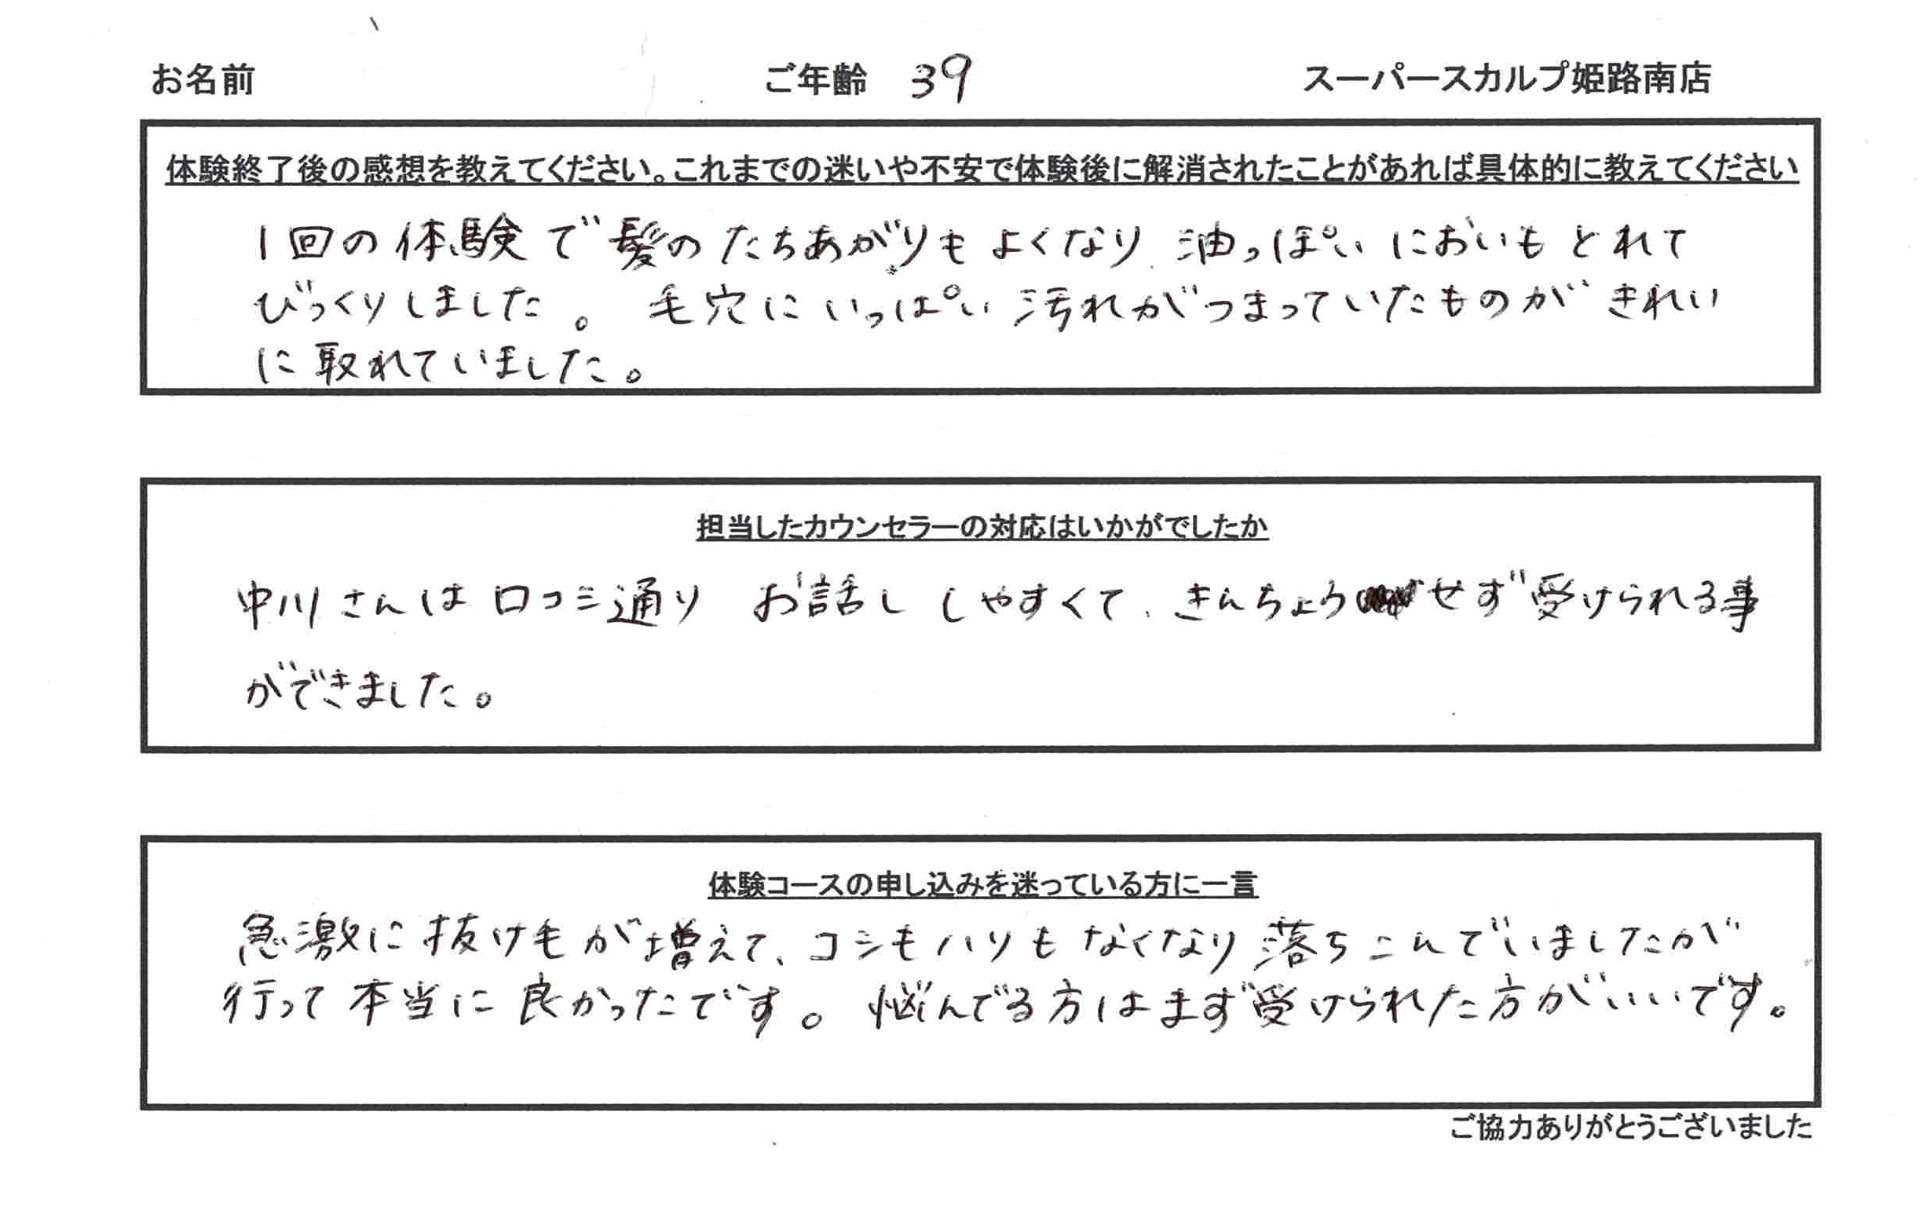 お名前 ご年齢 39 スーパースカルプ姫路南店
体験終了後の感想を教えてください。これまでの迷いや不安で体験後に解消されたことがあれば具体的に教えてください
1回の体験で髪のたちあがりもよくなり 油っぽいにおいもとれて
びっくりしました。 毛穴にいっぱい汚れがつまっていたものがきれい
に取れていました。
担当したカウンセラーの対応はいかがでしたか
中川さんは口コミ通り お話ししやすくて、きんちょうせず受けられる事
ができました。
体験コースの申し込みを迷っている方に一言
急激に抜け毛が増えて、コシもハリもなくなり落ちこんでいましたが
行って本当に良かったです。悩んでる方はまず受けられた方がいいです。
ご協力ありがとうございました